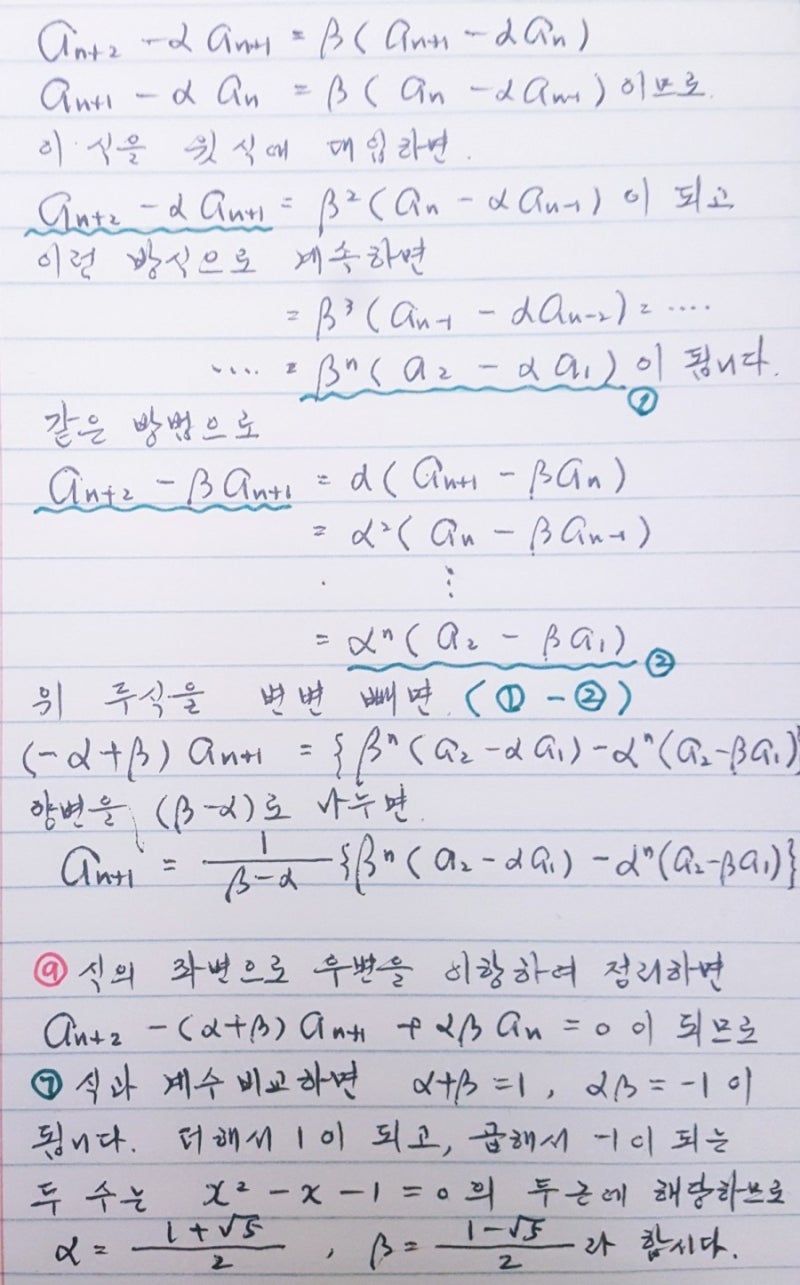 a_{n+2} - α a_{n+1} = β( a_{n+1} - α a_n )
a_{n+1} - α a_n = β( a_n - α a_{n-1} ) 이므로.
이 식을 윗 식에 대입하면.
a_{n+2} - α a_{n+1} = β²( a_n - α a_{n-1} ) 이 되고
이런 방식으로 계속하면
= β³( a_{n-1} - α a_{n-2} ) = ····
···· = βⁿ( a₂ - α a₁ ) 이 됩니다. ①
같은 방법으로
a_{n+2} - β a_{n+1} = α( a_{n+1} - β a_n )
= α²( a_n - β a_{n-1} )
⋮
= αⁿ( a₂ - β a₁ ) ②
위 두식을 변변 빼면. (① - ②)
(-α+β) a_{n+1} = { βⁿ( a₂ - α a₁ ) - αⁿ( a₂ - β a₁ )}
양변을 (β-α)로 나누면.
a_{n+1} = \frac{1}{β-α} { βⁿ( a₂ - α a₁ ) - αⁿ( a₂ - β a₁ )}
㉮ 식의 좌변으로 우변을 이항하여 정리하면
a_{n+2} - (α+β) a_{n+1} + αβ a_n = 0 이 되므로
㉠ 식과 계수 비교하면 α+β = 1, αβ = -1 이
됩니다. 더해서 1이 되고, 곱해서 -1이 되는
두 수는 x² - x - 1 = 0 의 두 근에 해당하므로
α = \frac{1+√5}{2} , β = \frac{1-√5}{2} 라 합시다.